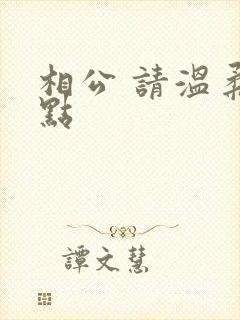 相公 請溫柔
點
譚文慧